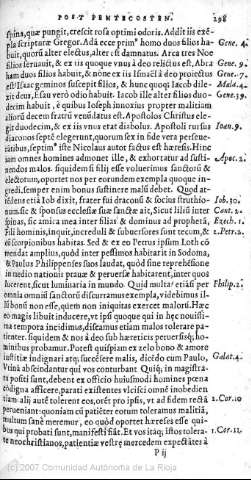 POST PENTECOSTEN. 298
spina, quæ pungit, crescit rosa optimi odoris. Addit iis exẽ-
pla scripturæ Gregor. Adã ecce primº homo duos filios ha-
buit, quorũ alter electus, alter est damnatus. Arca tres Noe
filios seruauit, & ex iis quoque vnus à deo reiectus est. Abra
ham duos filios habuit, & non ex iis Ismaël à deo proiectus
est: Isaac geminos suscepit filios, & hunc quoque Iacob dile-
xit deus, Esau verò odio habuit. Iacob ille alter filios duode-
cim habuit, è quibus Ioseph innoxius propter malitiam
aliorũ decem fratrũ venũdatus est. Apostolos Christus ele-
git duodecim, & ex iis vnus etat diabolus. Apostoli rursus
diaconos septẽ elegerunt, quorum sex in fide vera perseue-
rãtibus, septimº iste Nicolaus autor factus est hæresis. Hinc
iam omnes homines admonet ille, & exhortatur ad susti-
nendos malos. siquidem si filij esse voluerimus sanctorũ &
electorum, oportet nos per eorundem exempla quoque in-
gredi. semper enim bonus sustinere malũ debet. Quod at-
tẽdens etiã Iob dixit, frater fui draconũ & socius struthio-
num. sic & sponsus ecclesiæ suæ sanctæ ait, Sicut liliũ inter
spinas, sic amica mea inter filias: & dominus ad prophetã,
Fili hominis, inquit, increduli & subuersores sunt tecum, &
cũ scorpionibus habitas. Sed & ex eo Petrus ipsum Loth cõ
mendat amplius, quòd inter pessimos habitarit in Sodoma,
& Paulus Philippenses suos laudat, quòd sine reprehensione
in medio nationis prauæ & peruersæ habitarent, inter quos
lucerent, sicut luminaria in mundo. Quid multa? etiã si per
omnia omniũ sanctorũ discurramus exempla, videbimus il-
lũ bonũ non esse, quem non iniquitas exercet malorũ. Hæc
eo magis libuit inducere, vt ips quoque qui in hęc nouissi-
ma tempora incidimus, discamus etiam malos tolerare pa-
tienter. siquidem & nos à deo sub hæreticis peruersisque ho-
minibus probamur. Posset quispiam ex zelo bono & amore
iustitiæ indignari atque succẽsere malis, dicẽdo cum Paulo,
Vtinã abscindantur qui vos conturbant. Quique in magistra-
tu positi sunt, debent ex officio huiusmodi homines pœna
digna afficere, parati existentes vlcisci omnẽ inobedien
tiam. alij autẽ tolerent eos, orẽt pro ipsis, vt ad fidem rectã
perueniant: quoniam cũ patiẽter eorum toleramus malitiã,
multum sanè meremur, eo quòd oportet hæreses esse: qui-
bus qui probati sunt, manifesti fiãt. Et vos itaque, iustos tolera
te neochristianos, patientiæ vestræ mercedem expectãtes à
P ij
Gene. 4.
Gene. 9.
Gene. 7.
Mala. 4.
Gene. 39.
Ioan. 9.
Apoc. 2.
Iob. 30.
Cant. 2.
Ezech. 1.
2. Petr. 2.
Philip. 2.
Galat. 4.
2. Cor. 10
1. Cor. 11.
(c) 2007 Comunidad Autónoma de La Rioja